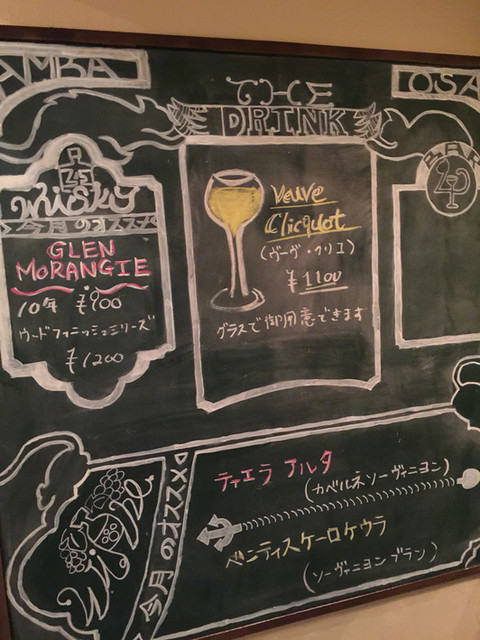 AMBA
OSA
THE
DRINK
BAR
Whisky
今月のオススメ
GLEN
MORANGIE
10年 ¥900
ウードフィニッシュシリーズ
¥1200
Veuve
Clicquot
(ヴーヴ・クリコ)
¥1100
グラスで御用意できます
Wine
今月のオススメ
ティエラ アルタ
(カベルネソーヴィニヨン)
ベンティスケーロケウラ
(ソーヴィニヨンブラン)